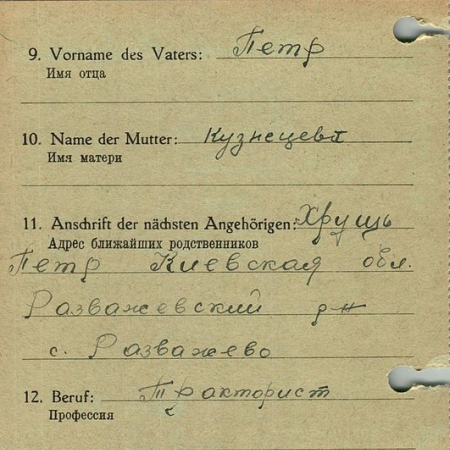 9. Vorname des Vaters: Петр
Имя отца
10. Name der Mutter: Кузнецева
Имя матери
11. Anschrift der nächsten Angehörigen: Хрущь
Адрес ближайших родственников
Петр Киевская обл.
Разважевский р-н
с. Разважево
12. Beruf: Тракторист
Профессия